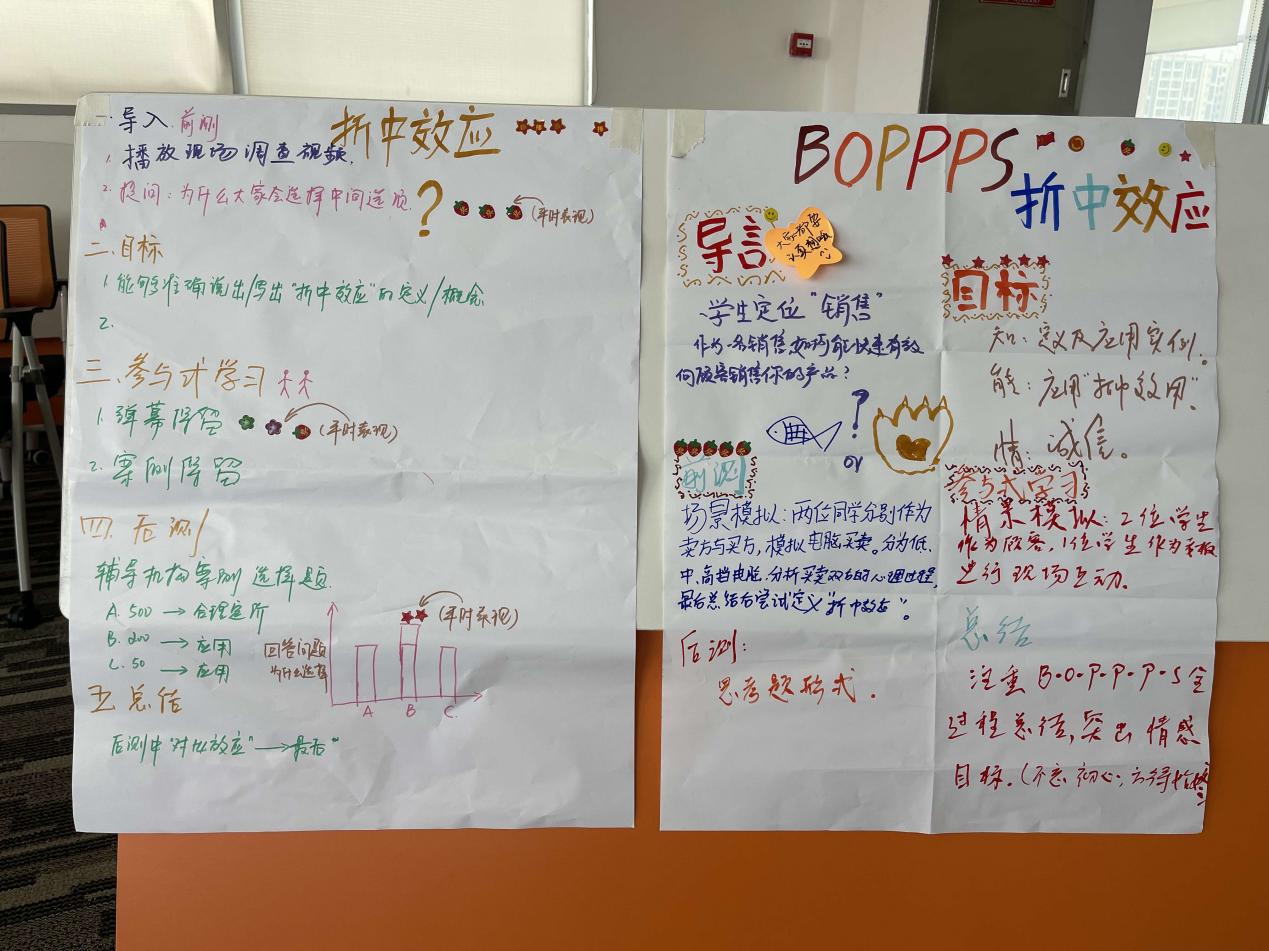 折中效应
一.导入 前测
1. 播放现场调查视频.
2. 提问:为什么大家会选择中间选项 ?
(平时表现)
二.目标
1. 能够准确说出/写出"折中效应"的定义/概念
2.
三.参与式学习
1. 弹幕保留
(平时表现)
2. 案例保留
四.后测
辅导机构案例 选择题
A. 500 → 合理定价
B. 200 → 应用
C. 50 → 应用
回答问题
为什么选择
(平时表现)
A B C.
五.总结
后测中"对比效应" → 最后"
BOPPPS
折中效应
导言
大家都要
认真想哦
、学生定位"销售"
作为一名销售,如何能快速有效
向顾客销售你的产品?
?
or
前测
场景模拟:两位同学分别作为
卖方与买方,模拟电脑买卖。分为低.
中.高档电脑.分析买卖双方的心理过程,
最后总结后尝试定义"折中效应"。
后测:
思考题形式.
目标
知:定义及应用实例.
能:应用"折中效用".
情:诚信。
参与式学习
情景模拟:2位学生
作为顾客,1位学生作为老板
进行现场互动。
总结
注重B·O·P·P·P·S全
过程总结,突出情感
目标.(不忘初心,方得始终)